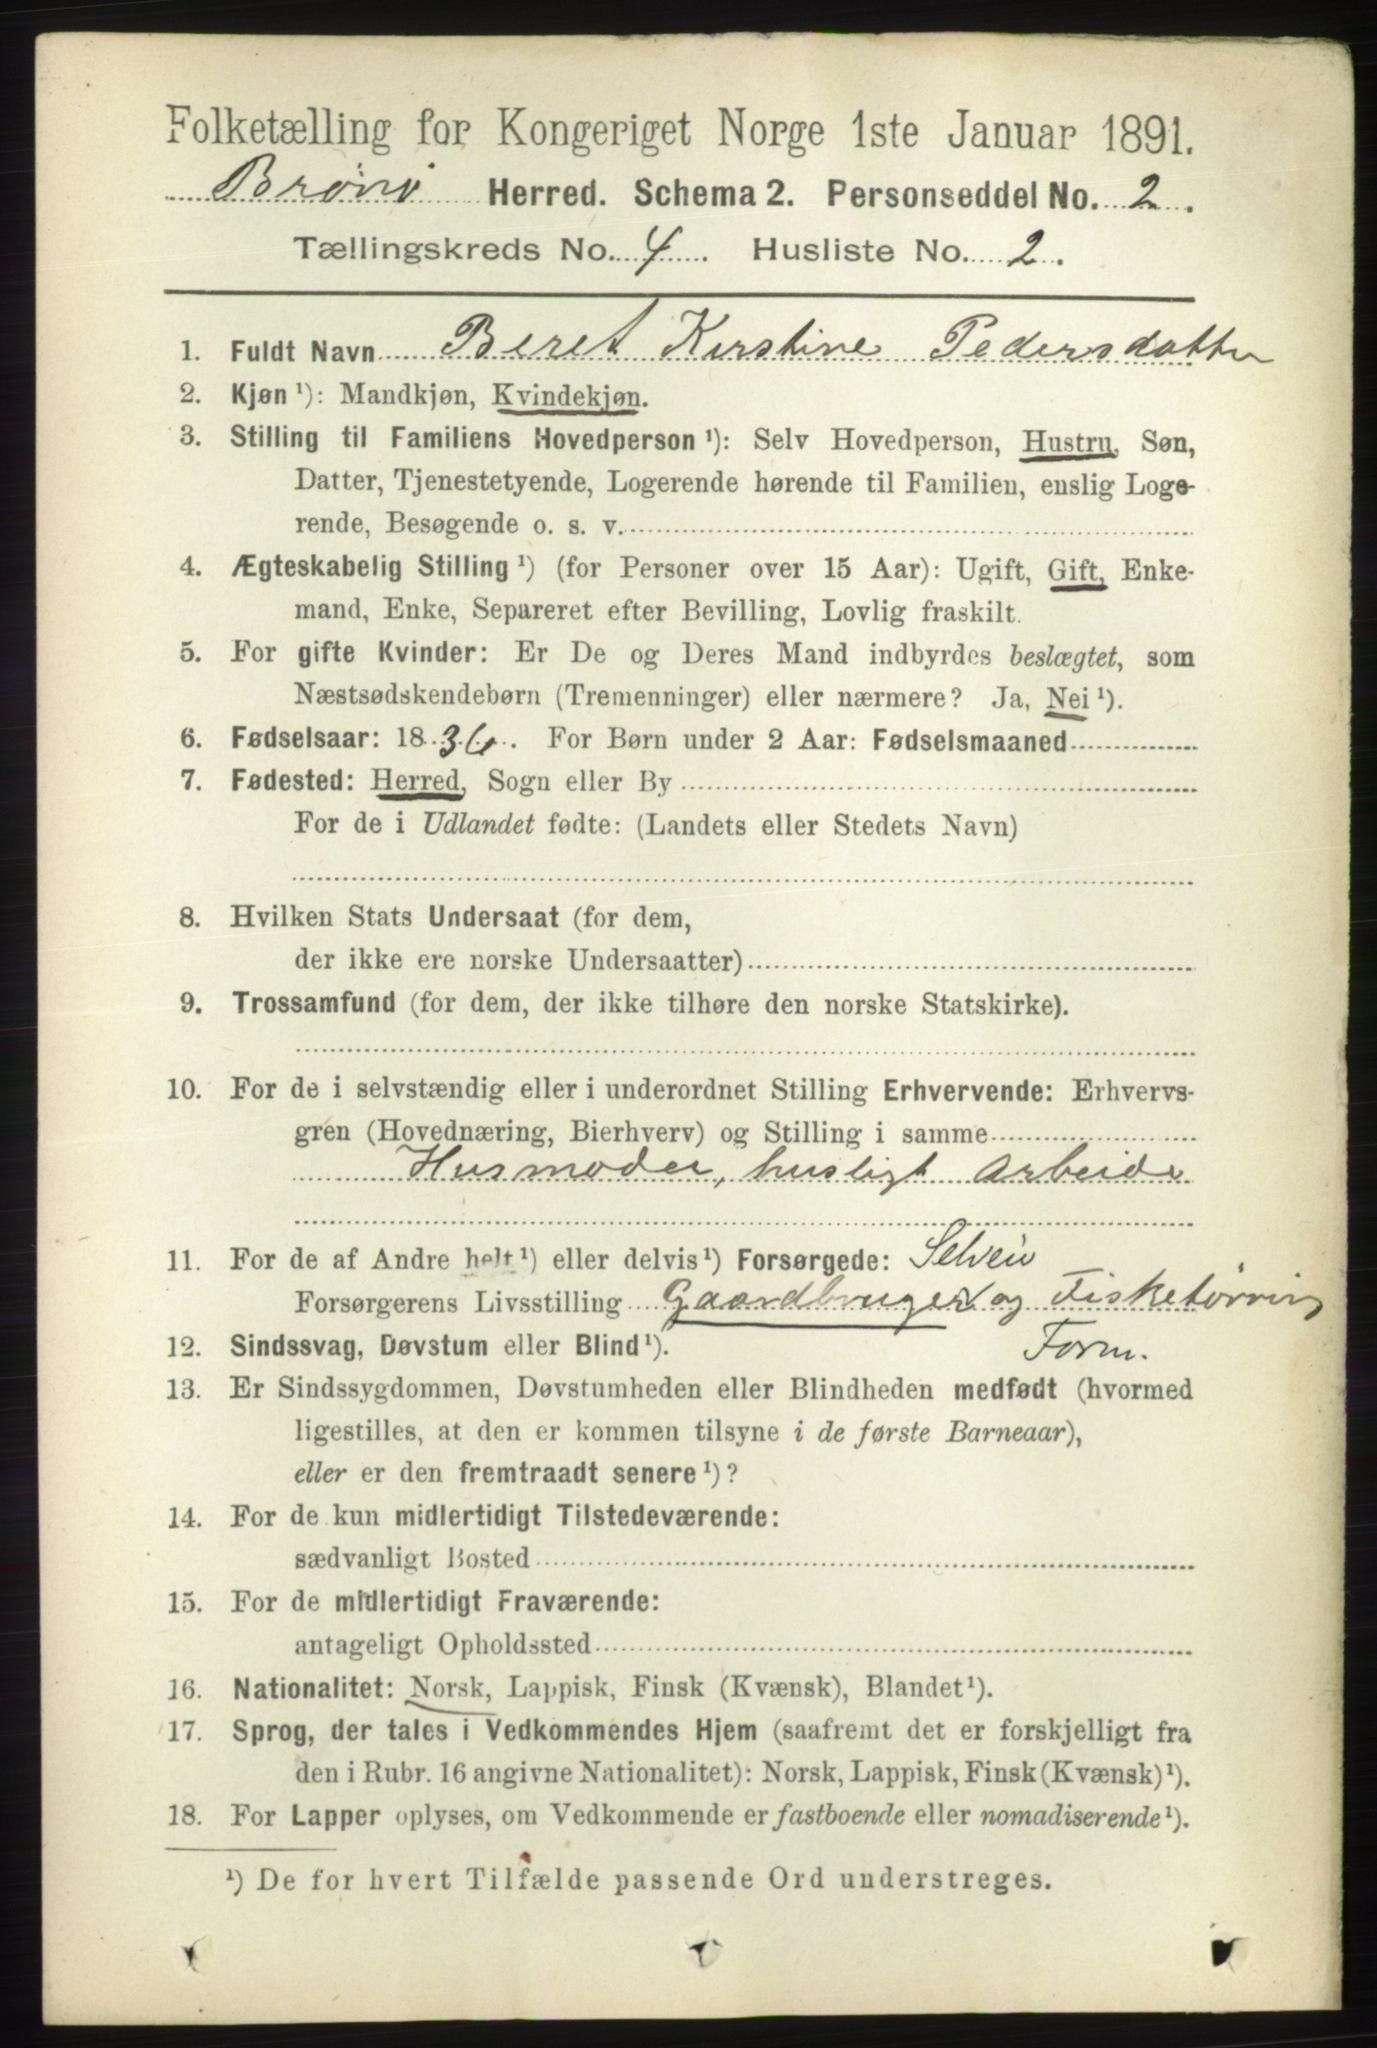 Folketælling for Kongeriget Norge 1ste Januar 1891.
Brønø Herred. Schema 2. Personseddel No. 2.
Tællingskreds No. 4. Husliste No. 2.
1. Fuldt Navn Beret Kirstine Pedersdatter
2. Kjøn ¹): Mandkjøn, Kvindekjøn.
3. Stilling til Familiens Hovedperson ¹): Selv Hovedperson, Hustru, Søn,
Datter, Tjenestetyende, Logerende hørende til Familien, enslig Loge-
rende, Besøgende o. s. v.
4. Ægteskabelig Stilling ¹) (for Personer over 15 Aar): Ugift, Gift, Enke-
mand, Enke, Separeret efter Bevilling, Lovlig fraskilt.
5. For gifte Kvinder: Er De og Deres Mand indbyrdes beslægtet, som
Næstsødskendebørn (Tremenninger) eller nærmere? Ja, Nei ¹).
6. Fødselsaar: 1836. For Børn under 2 Aar: Fødselsmaaned
7. Fødested: Herred, Sogn eller By
For de i Udlandet fødte: (Landets eller Stedets Navn)
8. Hvilken Stats Undersaat (for dem,
der ikke ere norske Undersaatter)
9. Trossamfund (for dem, der ikke tilhøre den norske Statskirke).
10. For de i selvstændig eller i underordnet Stilling Erhvervende: Erhvervs-
gren (Hovednæring, Bierhverv) og Stilling i samme
Husmoder, husligt Arbeide
11. For de af Andre helt ¹) eller delvis ¹) Forsørgede: Selvei
Forsørgerens Livsstilling Gaardbruger og Fisketørring
12. Sindssvag, Døvstum eller Blind ¹). Form.
13. Er Sindssygdommen, Døvstumheden eller Blindheden medfødt (hvormed
ligestilles, at den er kommen tilsyne i de første Barneaar),
eller er den fremtraadt senere ¹)?
14. For de kun midlertidigt Tilstedeværende:
sædvanligt Bosted
15. For de midlertidigt Fraværende:
antageligt Opholdssted
16. Nationalitet: Norsk, Lappisk, Finsk (Kvænsk), Blandet ¹).
17. Sprog, der tales i Vedkommendes Hjem (saafremt det er forskjelligt fra
den i Rubr. 16 angivne Nationalitet): Norsk, Lappisk, Finsk (Kvænsk) ¹).
18. For Lapper oplyses, om Vedkommende er fastboende eller nomadiserende ¹).
¹) De for hvert Tilfælde passende Ord understreges.